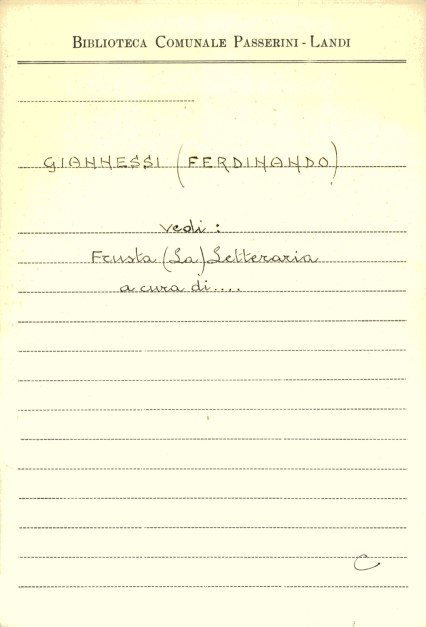 BIBLIOTECA COMUNALE PASSERINI - LANDI
GIANNESSI (FERDINANDO)
vedi :
Frusta (La) Letteraria
a cura di....
C